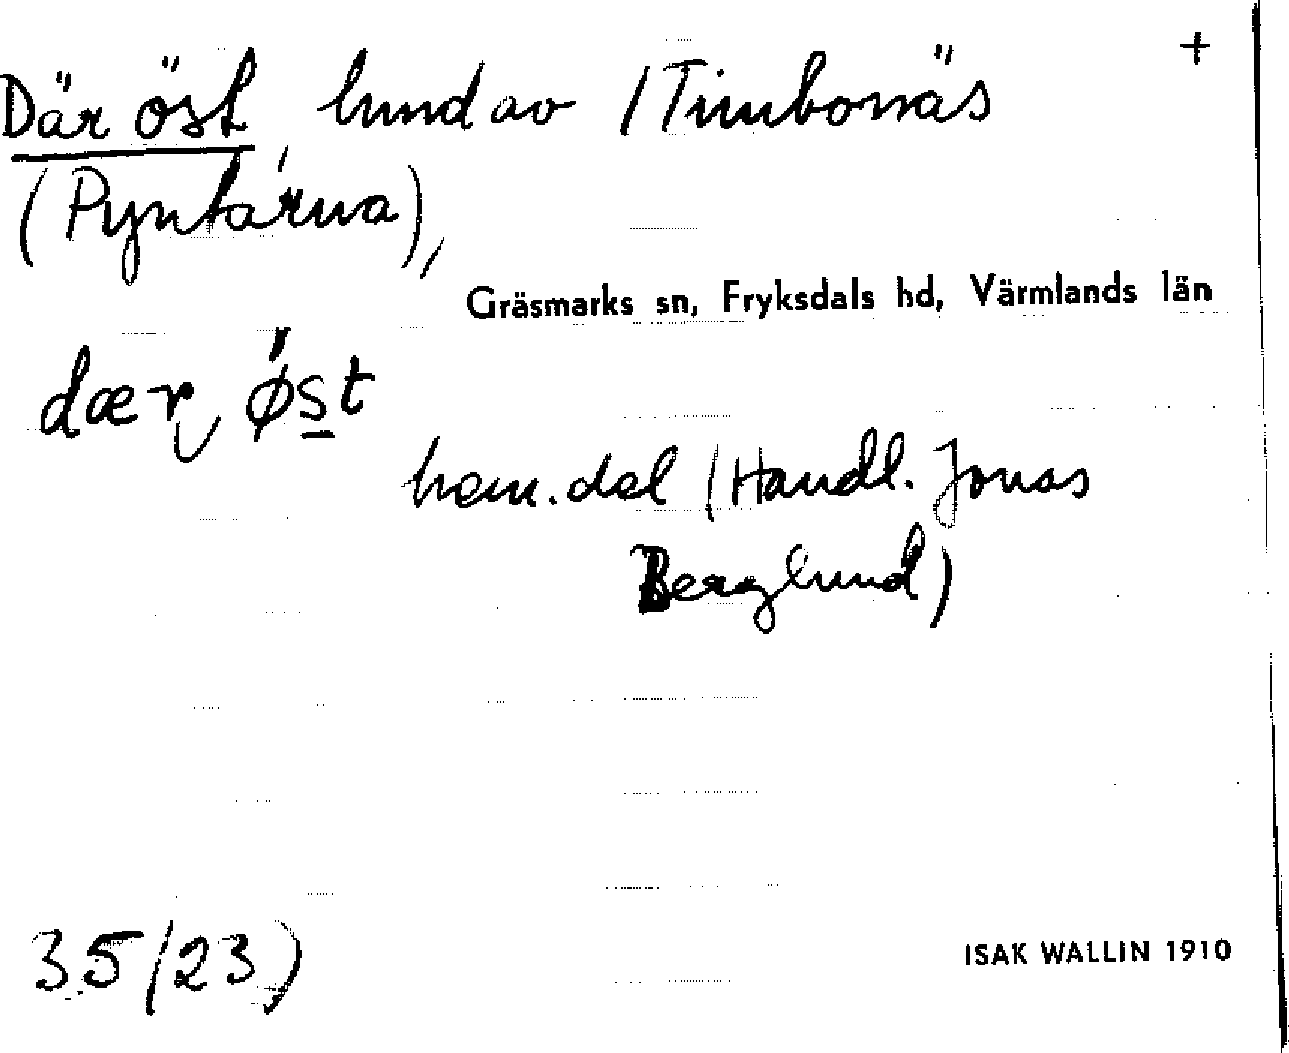 +
Där öst hmd av /Timbonäs
(Pyntárna),
Gräsmarks sn, Fryksdals hd, Värmlands län
dær øst
hem.del (Handl. Jonas
Berglund)
35(23)
ISAK WALLIN 1910